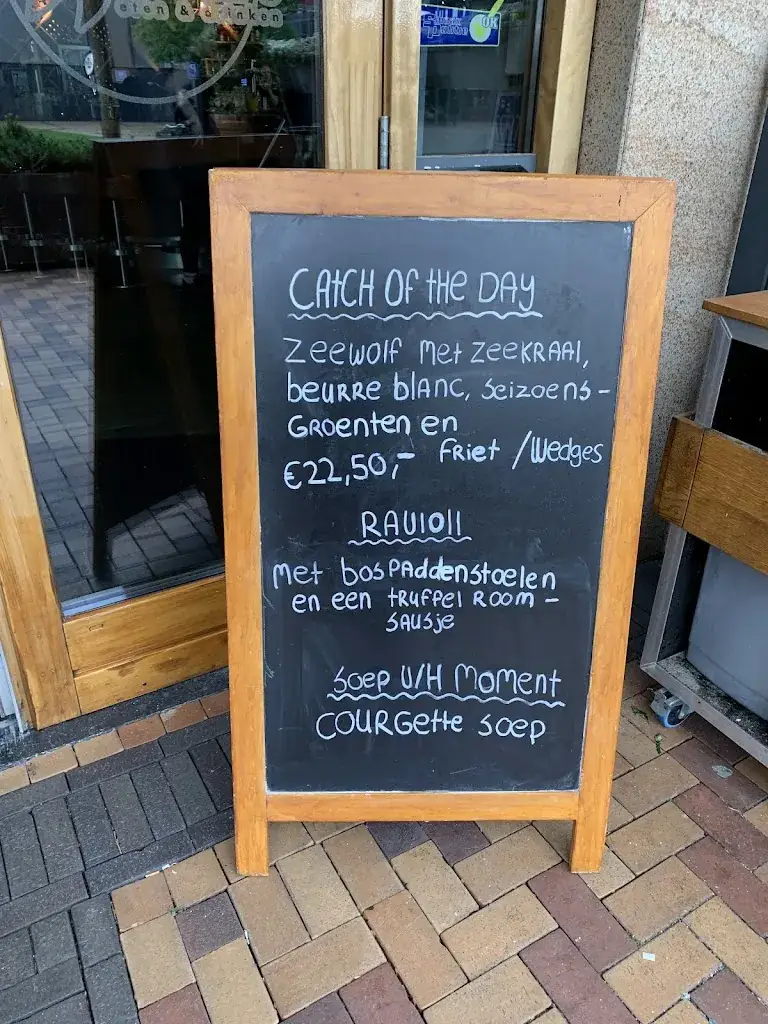 eten & drinken
CATCH OF THE DAY
ZEEWOLF MET ZEEKRAAL,
BEURRE BLANC, SEIZOENS-
GROENTEN EN
FRIET /WEDGES
€22,50,-
RAVIOLI
MET BOSPADDENSTOELEN
EN EEN TRUFFEL ROOM-
SAUSJE
SOEP V/H MOMENT
COURGETTE SOEP